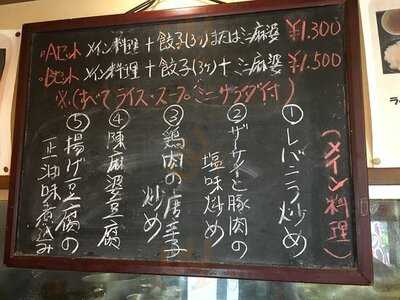 ・Aセット メイン料理＋餃子(3ヶ)または ミニ麻婆 ¥1.300
・Bセット メイン料理＋餃子(3ケ)＋ミニ麻婆 ¥1.500
※(すべて ライス・スープ ミニサラダ付)
(メイン料理)
①レバニラ炒め
②ザーサイと豚肉の
塩味炒め
③鶏肉の唐辛子
炒め
④陳麻婆豆腐
⑤揚げ豆腐の
正油味煮込み